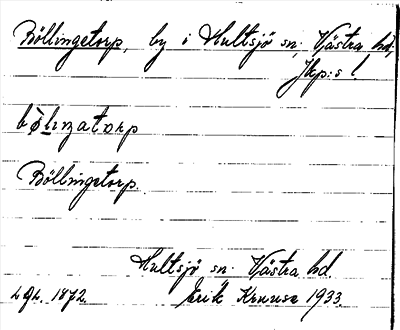 Böllingetorp, by i Hultsjö sn, Västra hd,
Jkp:s l.
Böllingetorp.
Hultsjö sn. Västra hd.
1872. Erik Kruuse 1933.